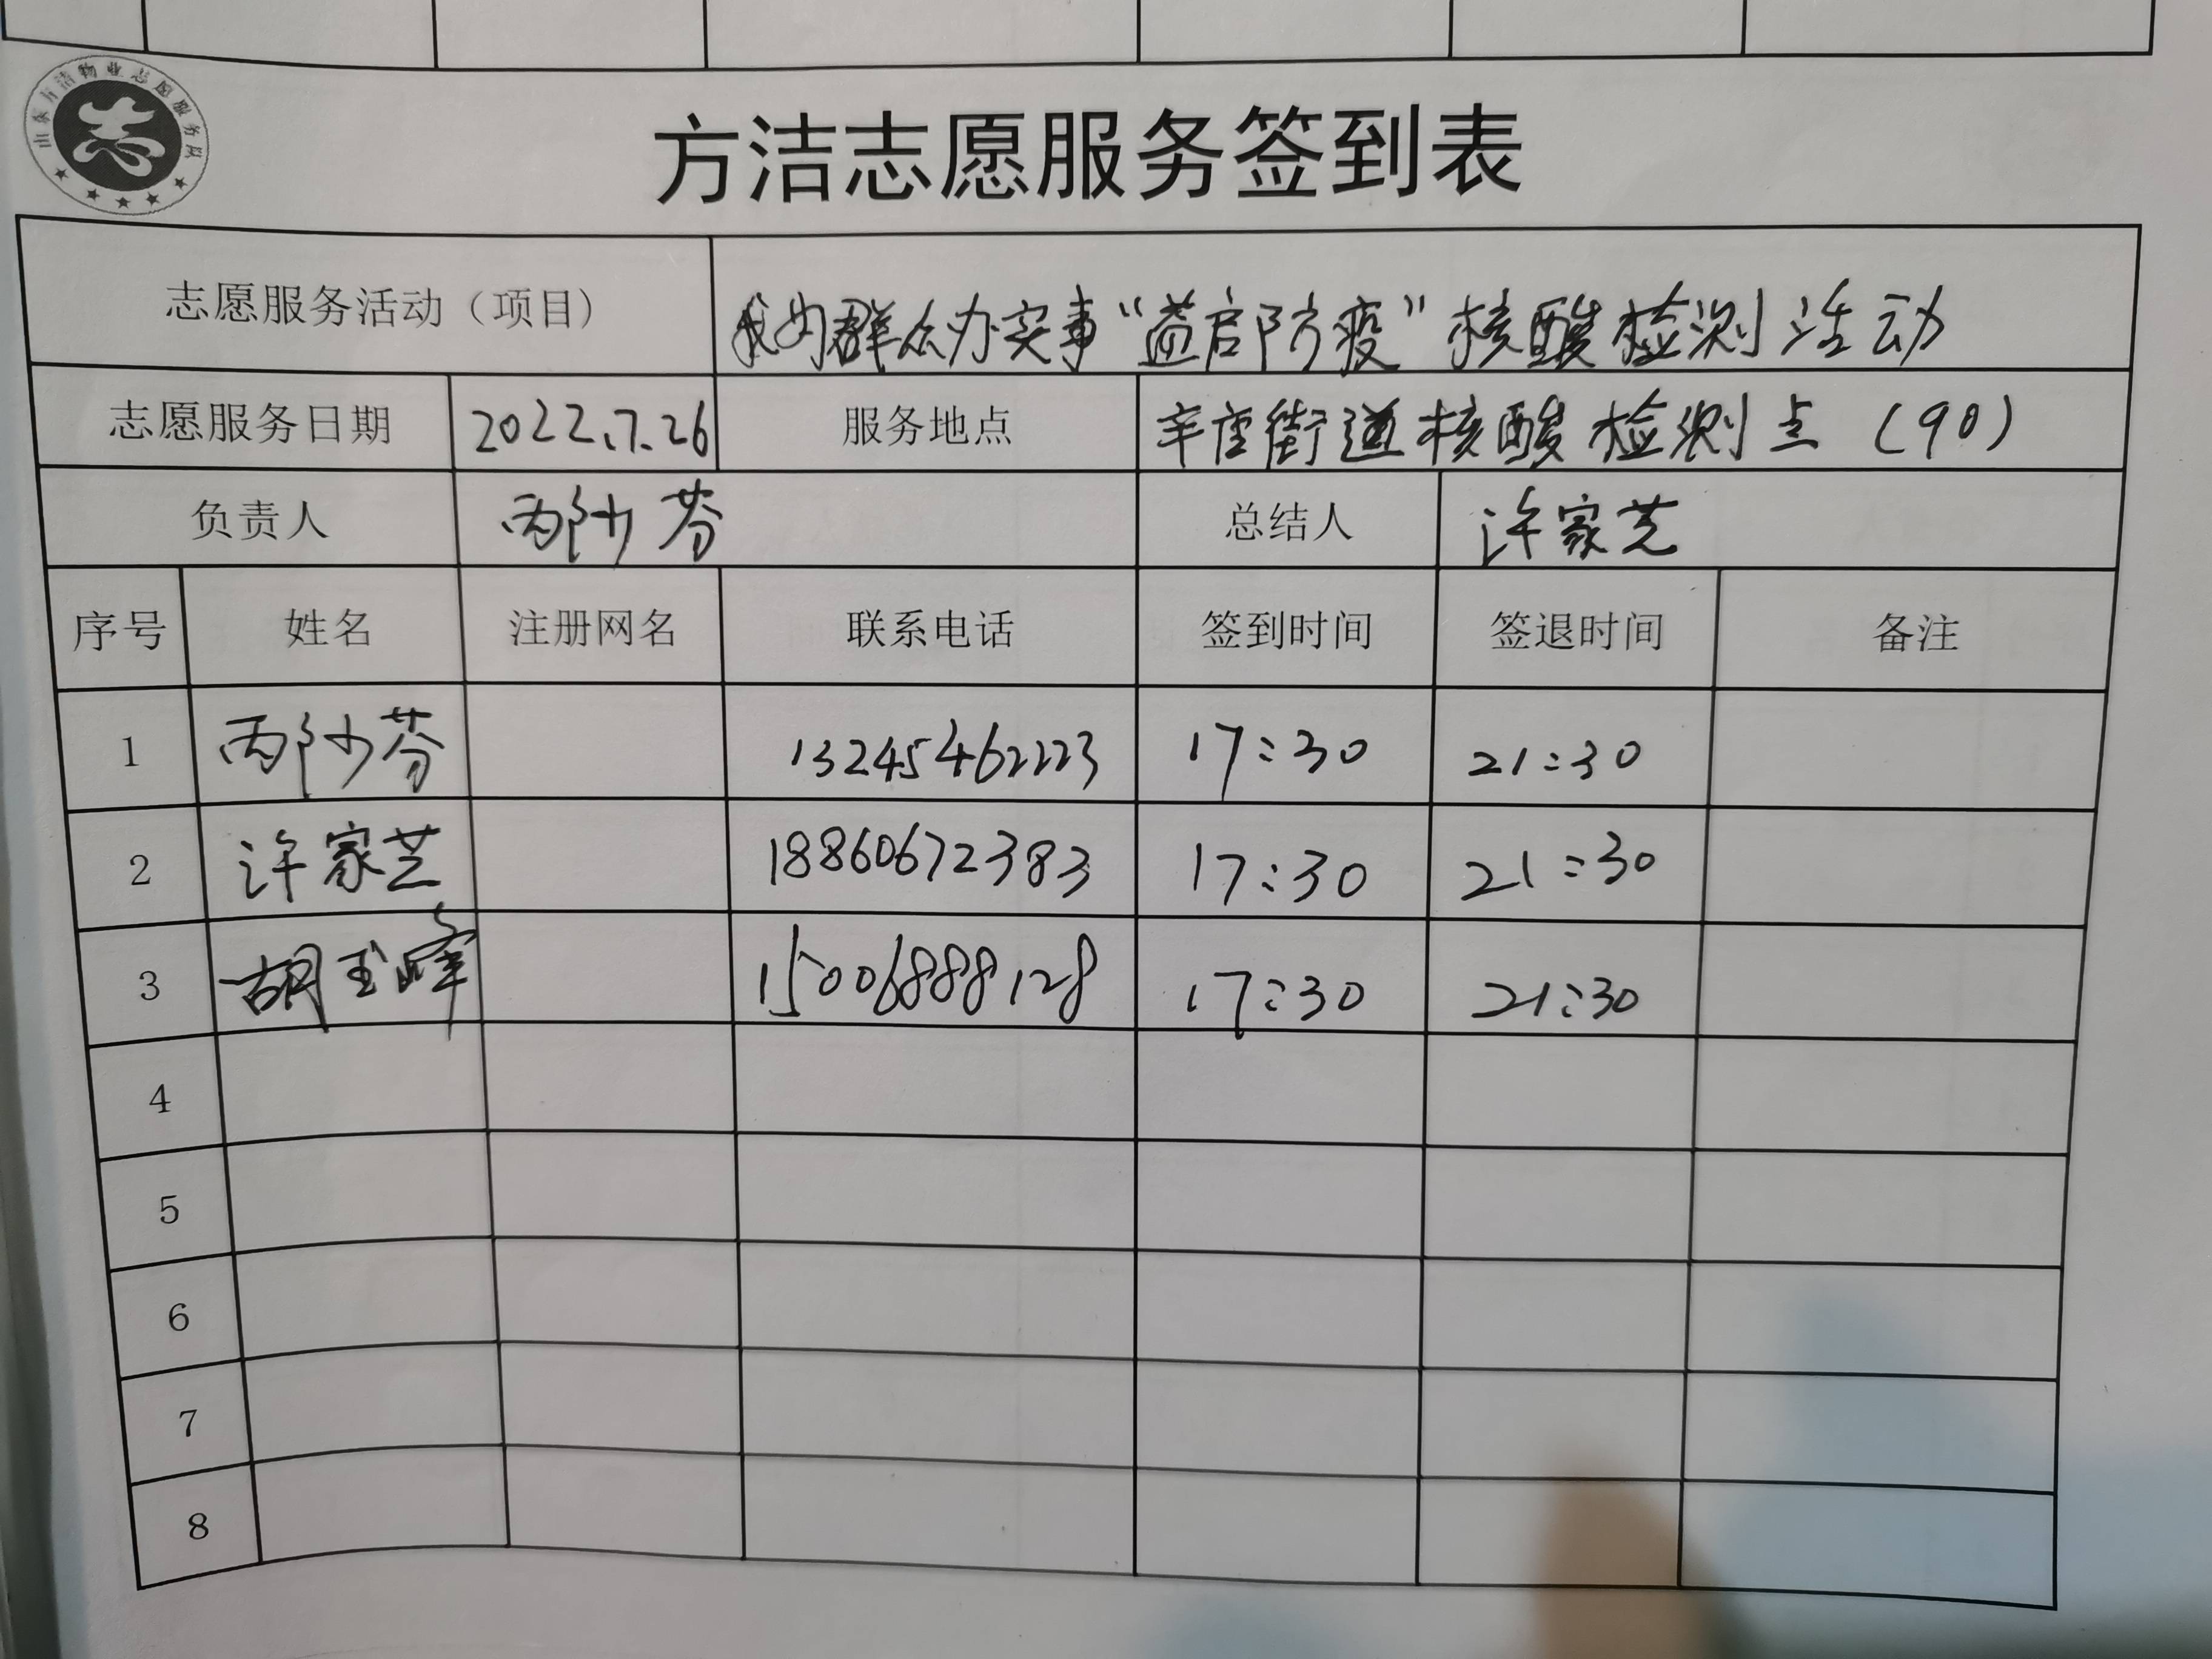 山东方洁物业志愿服务队
志
方洁志愿服务签到表
志愿服务活动（项目） 我为群众办实事“益启防疫”核酸检测活动
志愿服务日期 2022.7.26 服务地点 辛店街道核酸检测点（90）
负责人 邴少芬 总结人 许家芝
序号 姓名 注册网名 联系电话 签到时间 签退时间 备注
1 邴少芬 13245462223 17:30 21:30
2 许家芝 18860672383 17:30 21:30
3 胡玉峰 15006888128 17:30 21:30
4
5
6
7
8